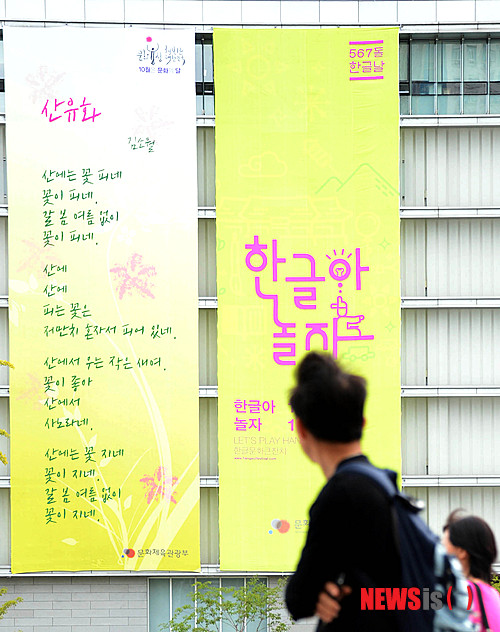 10월 문화의 달
산유화
김소월
산에는 꽃 피네
꽃이 피네.
갈 봄 여름 없이
꽃이 피네.
산에
산에
피는 꽃은
저만치 혼자서 피어 있네.
산에서 우는 작은 새여.
꽃이 좋아
산에서
사노라네.
산에는 꽃 지네
꽃이 지네.
갈 봄 여름 없이
꽃이 지네.
문화체육관광부
567돌
한글날
한글아
놀자
한글아
놀자
LET'S PLAY HAN
한글문화큰잔치
NEWSis